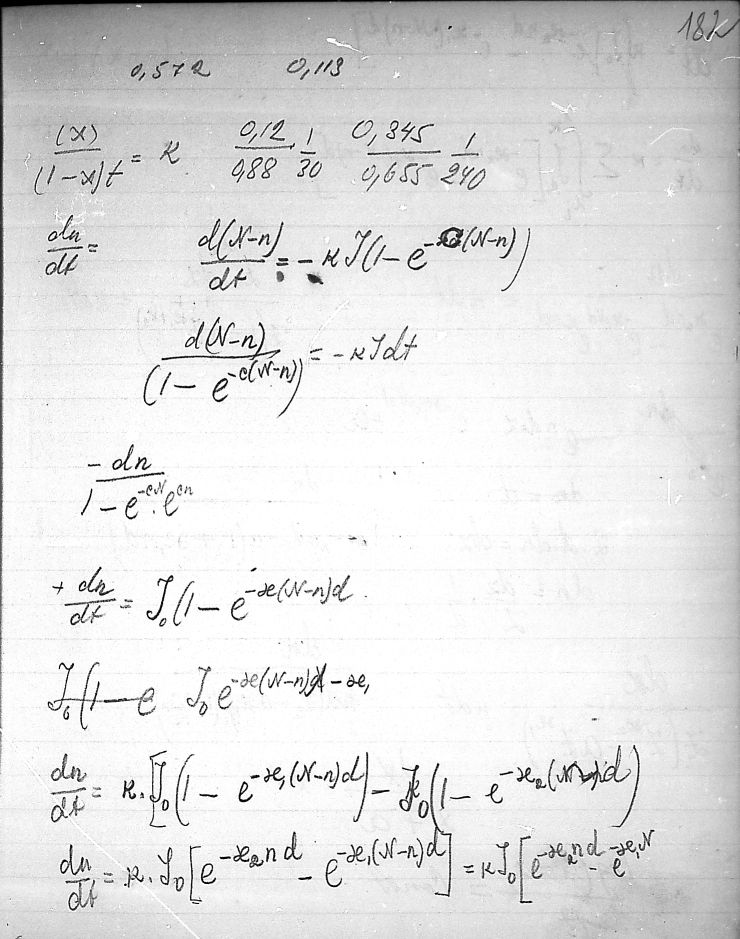 182
0,572 0,113
(x)/((1-x)t) = κ 0,12/0,88 · 1/30 0,345/0,655 · 1/240
dn/dt = d(N-n)/dt = -κJ(1-e^{-c(N-n)})
d(N-n)/(1-e^{-c(N-n)}) = -κJdt
-dn/(1-e^{-cN}·e^{cn})
+ dn/dt = J₀(1-e^{-æ(N-n)d}
J₀(1-e J₀e^{-æ(N-n)d-æ₁}
dn/dt = κ·[J₀(1-e^{-æ₁(N-n)d})-J₀(1-e^{-æ₂(N-n)d})
dn/dt = κ·J₀[e^{-æ₂nd}-e^{-æ₁(N-n)d}] = κJ₀[e^{-æ₂nd}-e^{-æ₁N}